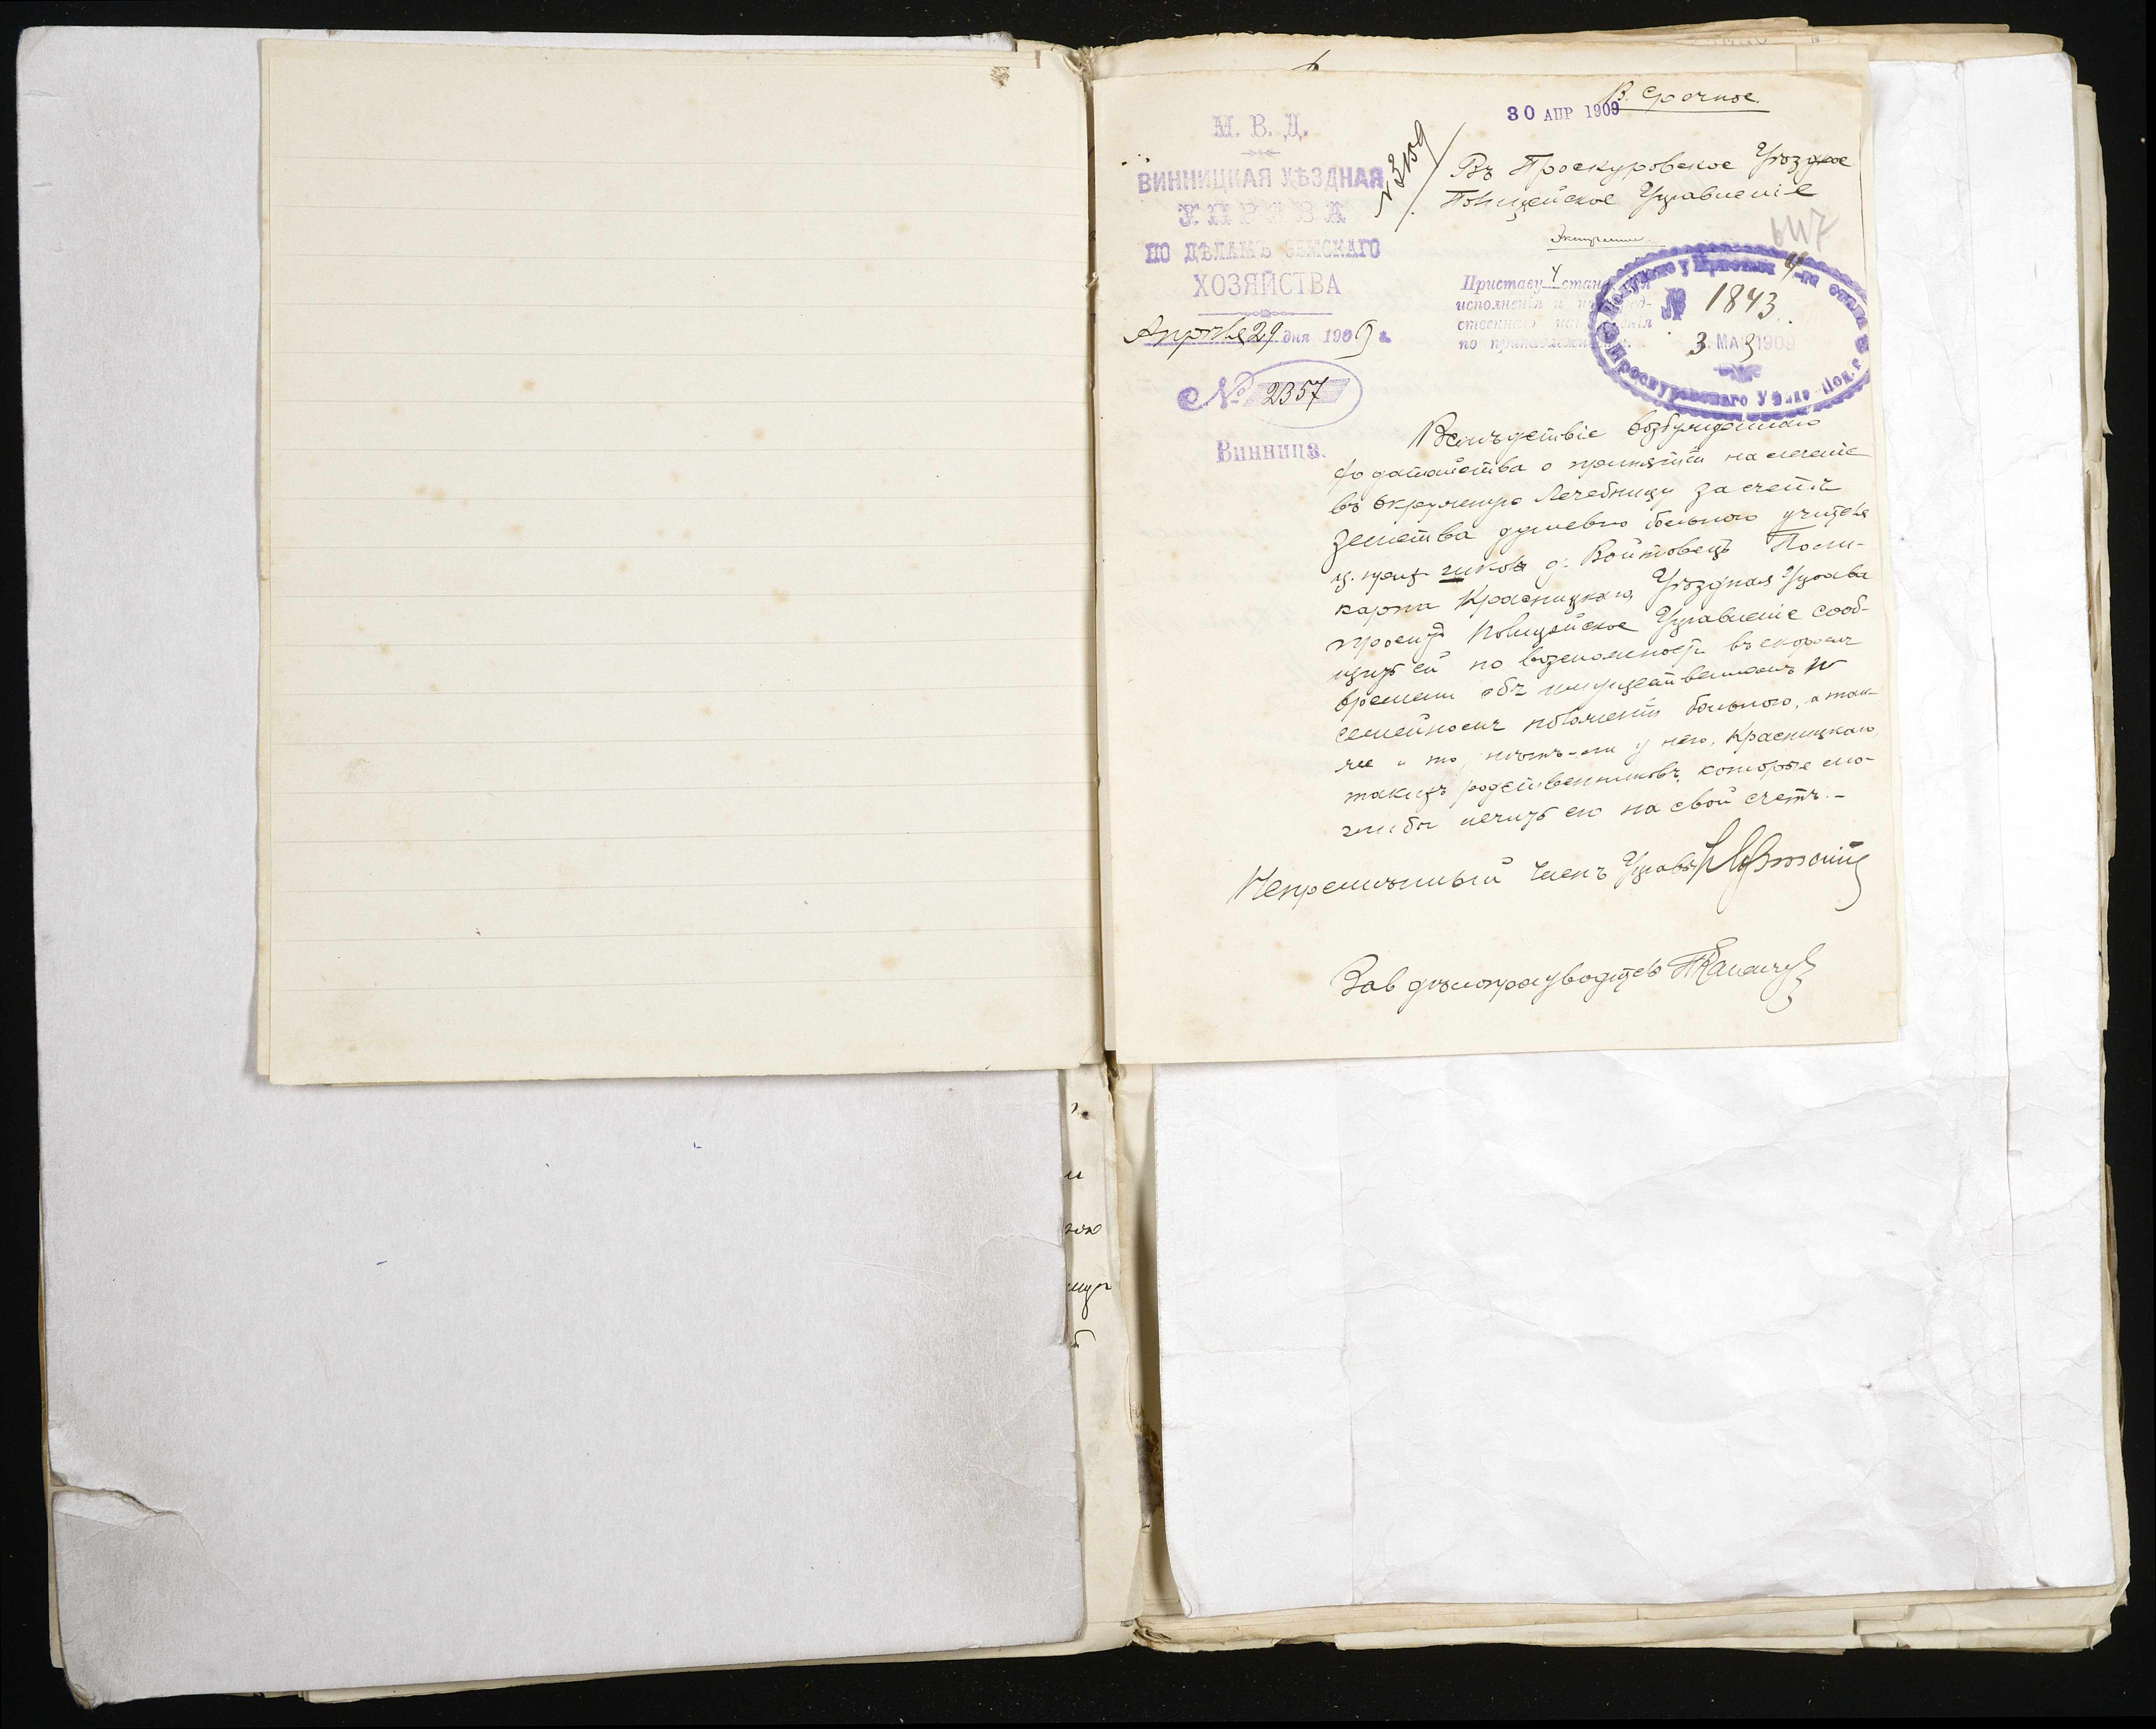 В. Срочное.
30 АПР 1909
М. В. Д.
ВИННИЦКАЯ УѢЗДНАЯ
УПРАВА
ПО ДѢЛАМЪ ЗЕМСКАГО
ХОЗЯЙСТВА
Апрѣля 29 дня 1909 г.
№ 2357
Винница.
№ 3159
Въ Проскуровское Уѣздное
Полицейское Управленіе
647
Приставу 4 стана
исполненія и
по принадлежности.
Получено у Пристава 4-го стана
№ 1843
3 МАЯ 1909
Проскуровскаго Уѣзда Под. г.
Вслѣдствіе возбужденнаго
ходатайства о принятіи на леченіе
въ Окружную Лечебницу за счетъ
земства душевно больного учителя
ц. прих. школы д. Войтовецъ Поли-
карпа Красницкаго, Уѣздная Управа
проситъ Полицейское Управленіе сооб-
щить ей по возможности въ скоромъ
времени объ имущественномъ и
семейномъ положеніи больного, а так-
же и то, нѣтъ-ли у него, Красницкаго,
такихъ родственниковъ, которые мо-
гли бы лечить его на свой счетъ.-
Непремѣнный Членъ Управы
Зав дѣлопроизводствомъ